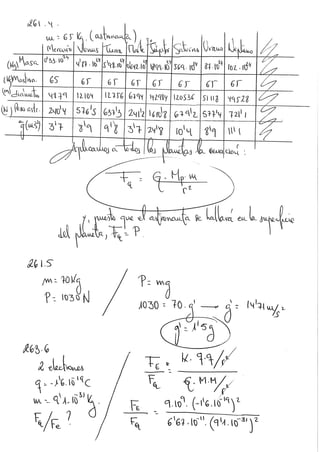 261.4.
m = 65 Kg. (astronauta)
Mercurio Venus Tierra Marte Júpiter Saturno Urano Neptuno
(kg) Masa 0'33·10²⁴ 4'87·10²⁴ 5'98·10²⁴ 0'642·10²⁴ 1899·10²⁴ 569·10²⁴ 87·10²⁴ 102·10²⁴
65 65 65 65 65 65 65 65
diámetro 4879 12104 12756 6794 142984 120536 51118 49528
(N) Peso astr. 240'4 576'5 637'5 241'2 1610'8 679'2 577'4 721'1
g (m/s²) 3'7 8'9 9'8 3'7 24'8 10'4 8'9 11'1
Aplicamos a todos los planetas la ecuación:
F_G = G·Mp·m / r²
y, puesto que el astronauta se hallará en la superficie
del planeta, F_G = P.
261.5
m = 70 Kg
P = 1030 N
P = mg
1030 = 70·g' → g' = 14'71 m/s²
g' = 1'5 g
263.6
2 electrones
q = -1'6·10⁻¹⁹ C
m = 9'1·10⁻³¹ Kg.
F_G/F_e ?
F_E / F_G = K·q·q/r² / G·M·M/r²
F_E / F_G = 9·10⁹·(-1'6·10⁻¹⁹)² / 6'67·10⁻¹¹·(9'1·10⁻³¹)²